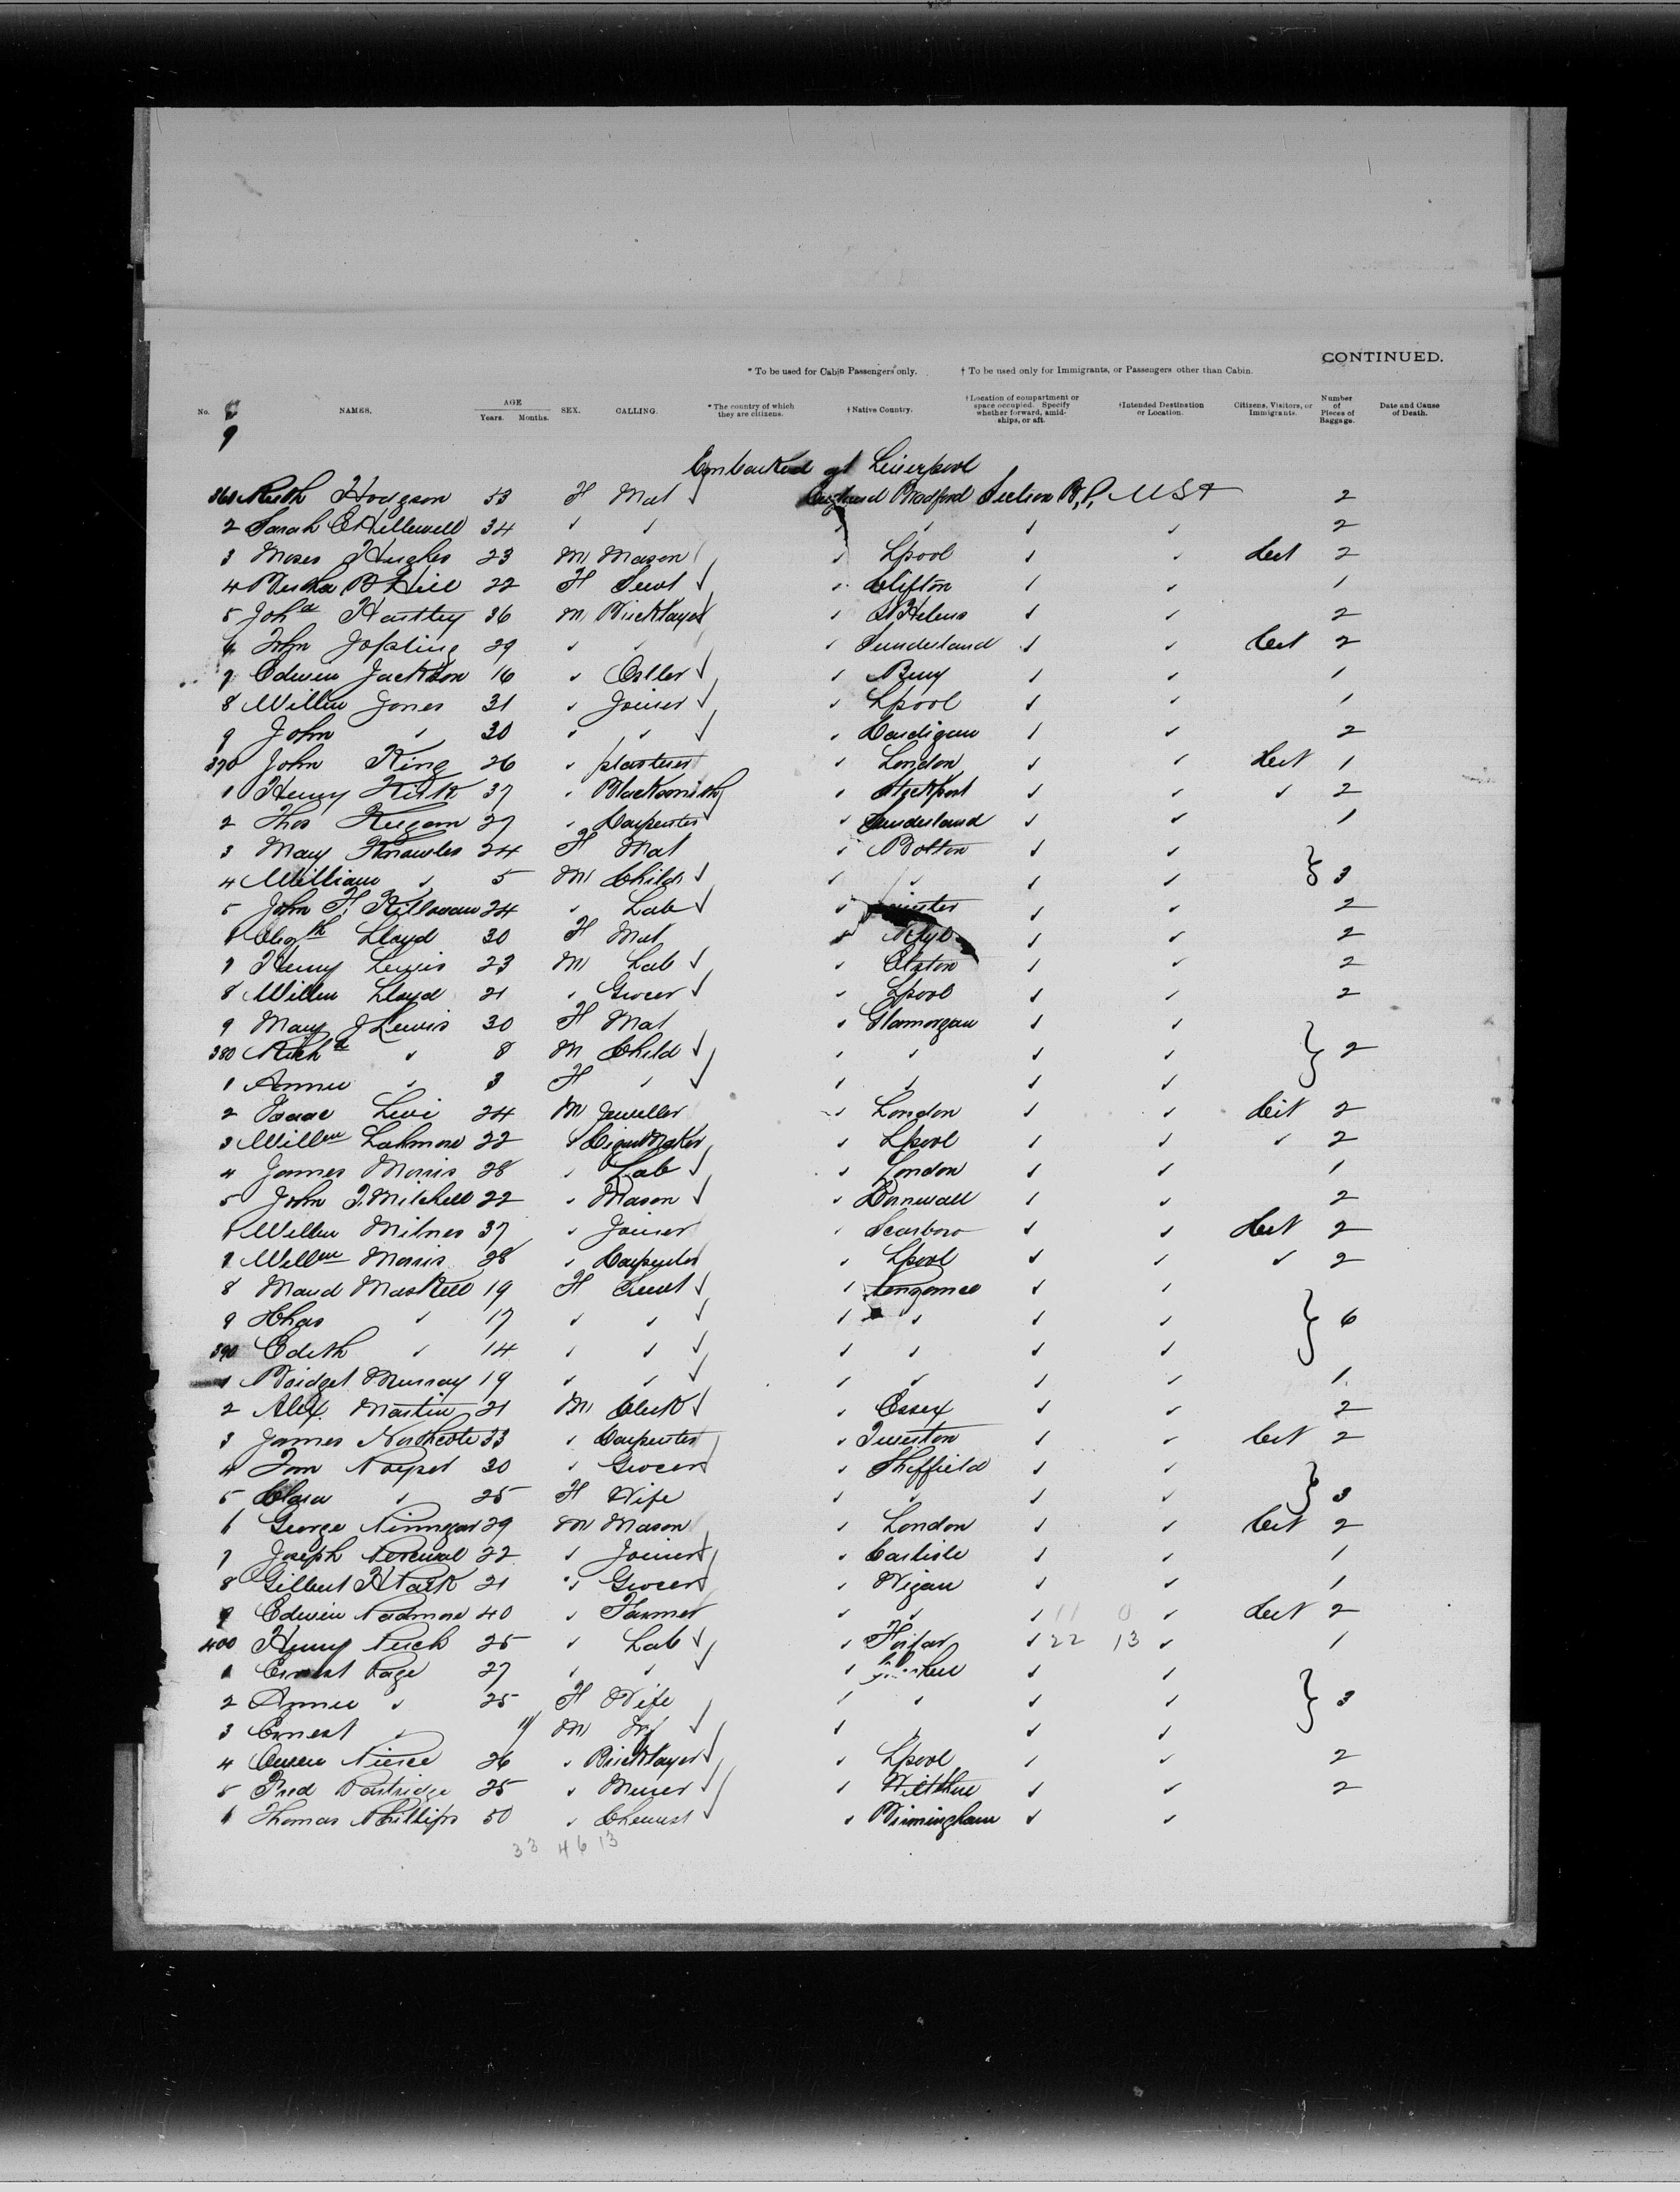 CONTINUED.
* To be used for Cabin Passengers only. † To be used only for Immigrants, or Passengers other than Cabin.
No. NAMES. AGE Years. Months. SEX. CALLING. * The country of which they are citizens. † Native Country. † Location of compartment or space occupied. Specify whether forward, amidships, or aft. † Intended Destination or Location. Citizens, Visitors, or Immigrants. Number of Pieces of Baggage. Date and Cause of Death.
9
Embarked at Liverpool
361 Ruth Hodgson 53 F Mat England Bradford Section USA 2
2 Sarah E Hellewell 34 " " " " " " 2
3 Moses Hughes 23 M Mason " Lpool " " Cit 2
4 Bertha B Hill 22 F Servt " Clifton " " 1
5 Hartley 36 M Bricklayer " St Helens " " 2
6 John Jopling 29 " " " Sunderland " " Cit 2
7 Edwin Jackson 16 " " Bury " " 1
8 Willm Jones 31 " Joiner " Lpool " " 1
9 John " 30 " " " Cardigan " " 2
370 John King 26 " plasterer " London " " Cit 1
1 Henry Kirk 37 " Blacksmith " Stockport " " " 2
2 Thos 27 " Carpenter " Sunderland " " 1
3 Mary Knowles 24 F Mat " Bolton " "
4 William " 5 M Child " " " " } 3
5 John F. 24 " Lab " " " 2
6 Elizth Lloyd 30 F Mat " Rhyl " " 2
7 Henry Lewis 23 M Lab " " " 2
8 Willm Lloyd 21 " Grocer " Lpool " " 2
9 Mary J Lewis 30 F Mat " Glamorgan " "
380 Richd " 8 M Child " " " " } 2
1 Annie " 3 F " " " " "
2 Isaac Levi 24 M Jeweller " London " " Cit 2
3 Willm 22 " Cigar Maker " Lpool " " " 2
4 James Morris 28 " Lab " London " " 1
5 John J. Mitchell 22 " Mason " Cornwall " " 2
6 Willm Milner 37 " Joiner " Scarboro " " Cit 2
7 Willm Morris 28 " Carpenter " Lpool " " " 2
8 Maud Maskell 19 F Servt " " "
9 " 17 " " " " " " } 6
390 Edith " 14 " " " " " "
1 Bridget Murray 19 " " " " " " 1
2 Alex. Martin 21 M Clerk " Essex " " 2
3 James Northcote 33 " Carpenter " " " Cit 2
4 Tom 30 " Grocer " Sheffield " "
5 Clara " 25 F Wife " " " " } 3
6 George 29 M Mason " London " " Cit 2
7 Joseph Percival 22 " Joiner " Carlisle " " 1
8 Gilbert H Park 21 " Grocer " Wigan " " 1
9 Edwin Padmore 40 " Farmer " " " 11 0 " Cit 2
400 Henry 25 " Lab " " 22 13 " 1
1 Ernest Page 27 " " " " "
2 Annie " 25 F Wife " " " " } 3
3 Ernest " 11 M Inf " " " "
4 Pierce 26 " Bricklayer " Lpool " " 2
5 Fred Partridge 25 " Miner " " " 2
6 Thomas Phillips 50 " Chemist " Birmingham " "
33 46 13